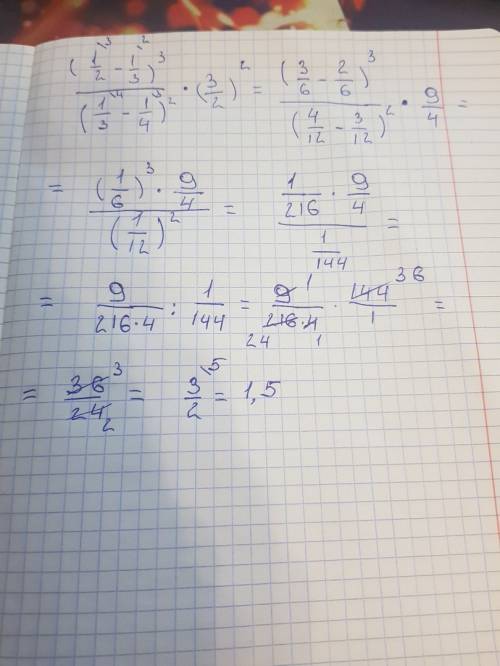 (1/2^\3 - 1/3^\2)^3 / (1/3^\4 - 1/4^\3)^2 · (3/2)^2 = (3/6 - 2/6)^3 / (4/12 - 3/12)^2 · 9/4 =
= (1/6)^3 · 9/4 / (1/12)^2 = 1/216 · 9/4 / 1/144 =
= 9/216·4 : 1/144 = 9 1/216·4 24 1 · 144 36/1 =
= 36 3/24 2 = 3/2^\5 = 1,5